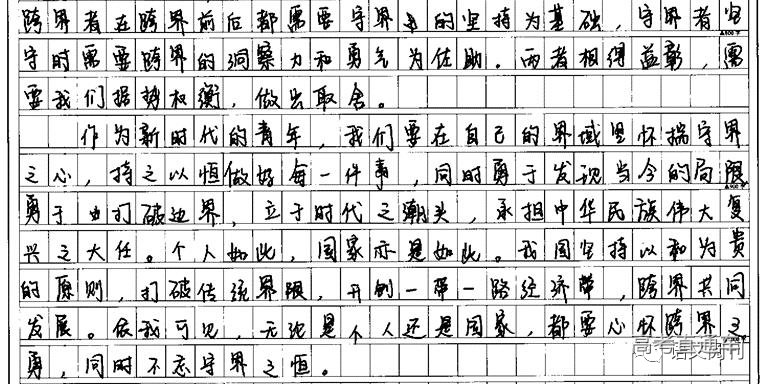 跨界者在跨界前后都需要守界者的坚持为基础,守界者坚
守时需要跨界的洞察力和勇气为佐助。两者相得益彰,需
要我们据势权衡,做出取舍。
作为新时代的青年,我们要在自己的界域里怀揣守界
之心,持之以恒做好每一件事,同时勇于发现当今的局限
勇于去打破边界,立于时代之潮头,承担中华民族伟大复
兴之大任。个人如此,国家亦是如此。我国坚持以和为贵
的原则,打破传统界限,开创一带一路经济带,跨界共同
发展。依我可见,无论是个人还是国家,都要心怀跨界之
勇,同时不忘守界之恒。